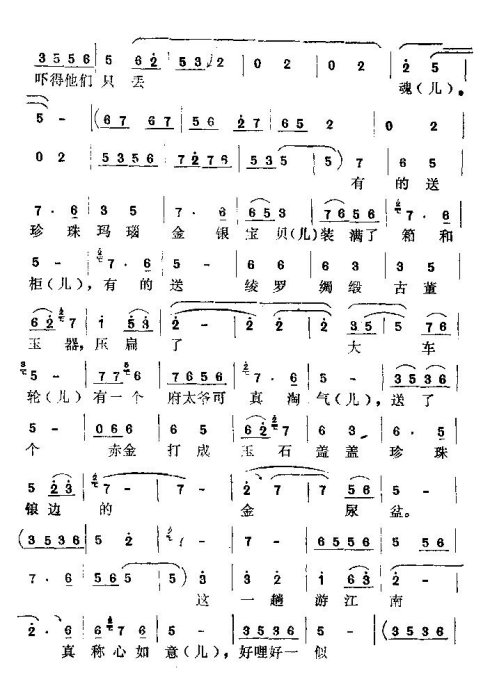 3 5 5 6 | 5 6 2 | 5 3 2 | 0 2 | 0 2 | 2 5 |
吓得他们 只 丢 魂（儿）。
5 - | (6 7 6 7 | 5 6 7 | 6 7 6 7 | 5 6 2 | 0 2 |
0 2 | 5 3 5 6 | 7 2 7 6 | 5 3 5 5 | 5) 7 | 6 5 |
有 的 送
7 · 6 | 3 5 | 7 · 6 | 6 5 3 | 7 6 5 6 | 7 · 6 |
珍 珠 玛 瑙 金 银 宝 贝(儿)装 满 了 箱 和
5 - | 7 · 6 | 5 - | 6 6 | 6 3 | 3 5 |
柜（儿），有 的 送 绫 罗 绸 缎 古 董
6 2 7 | 1 5 3 | 2 - | 2 - | 2 3 5 | 5 7 6 |
玉 器，压 扁 了 大 车
5 - | 7 7 6 | 7 6 5 6 | 7 · 6 | 5 - | 3 5 3 5 |
轮（儿）有 一 个 府太爷可 真 淘 气（儿），送 了
5 - | 0 6 6 | 6 5 | 6 2 7 | 6 · 5 | 6 5 |
个 赤金 打 成 玉 石 盖 盖 珍 珠
5 2 3 | 7 - | 7 - | 2 - | 7 5 6 | 5 - |
镶边 的 金 尿 盆。
(3 5 3 6 | 5 2 | 1 7 | 7 - | 6 5 5 6 | 5 5 6 |
7 · 6 | 5 6 5 | 5) 3 | 3 2 | 1 6 3 | 5 - |
这 一 趟 游 江 南
2 · 6 | 7 6 5 6 | 5 - | 3 5 3 6 | 5 - | (3 5 3 6 |
真 称 心 如 意（儿），好哩好 一 似